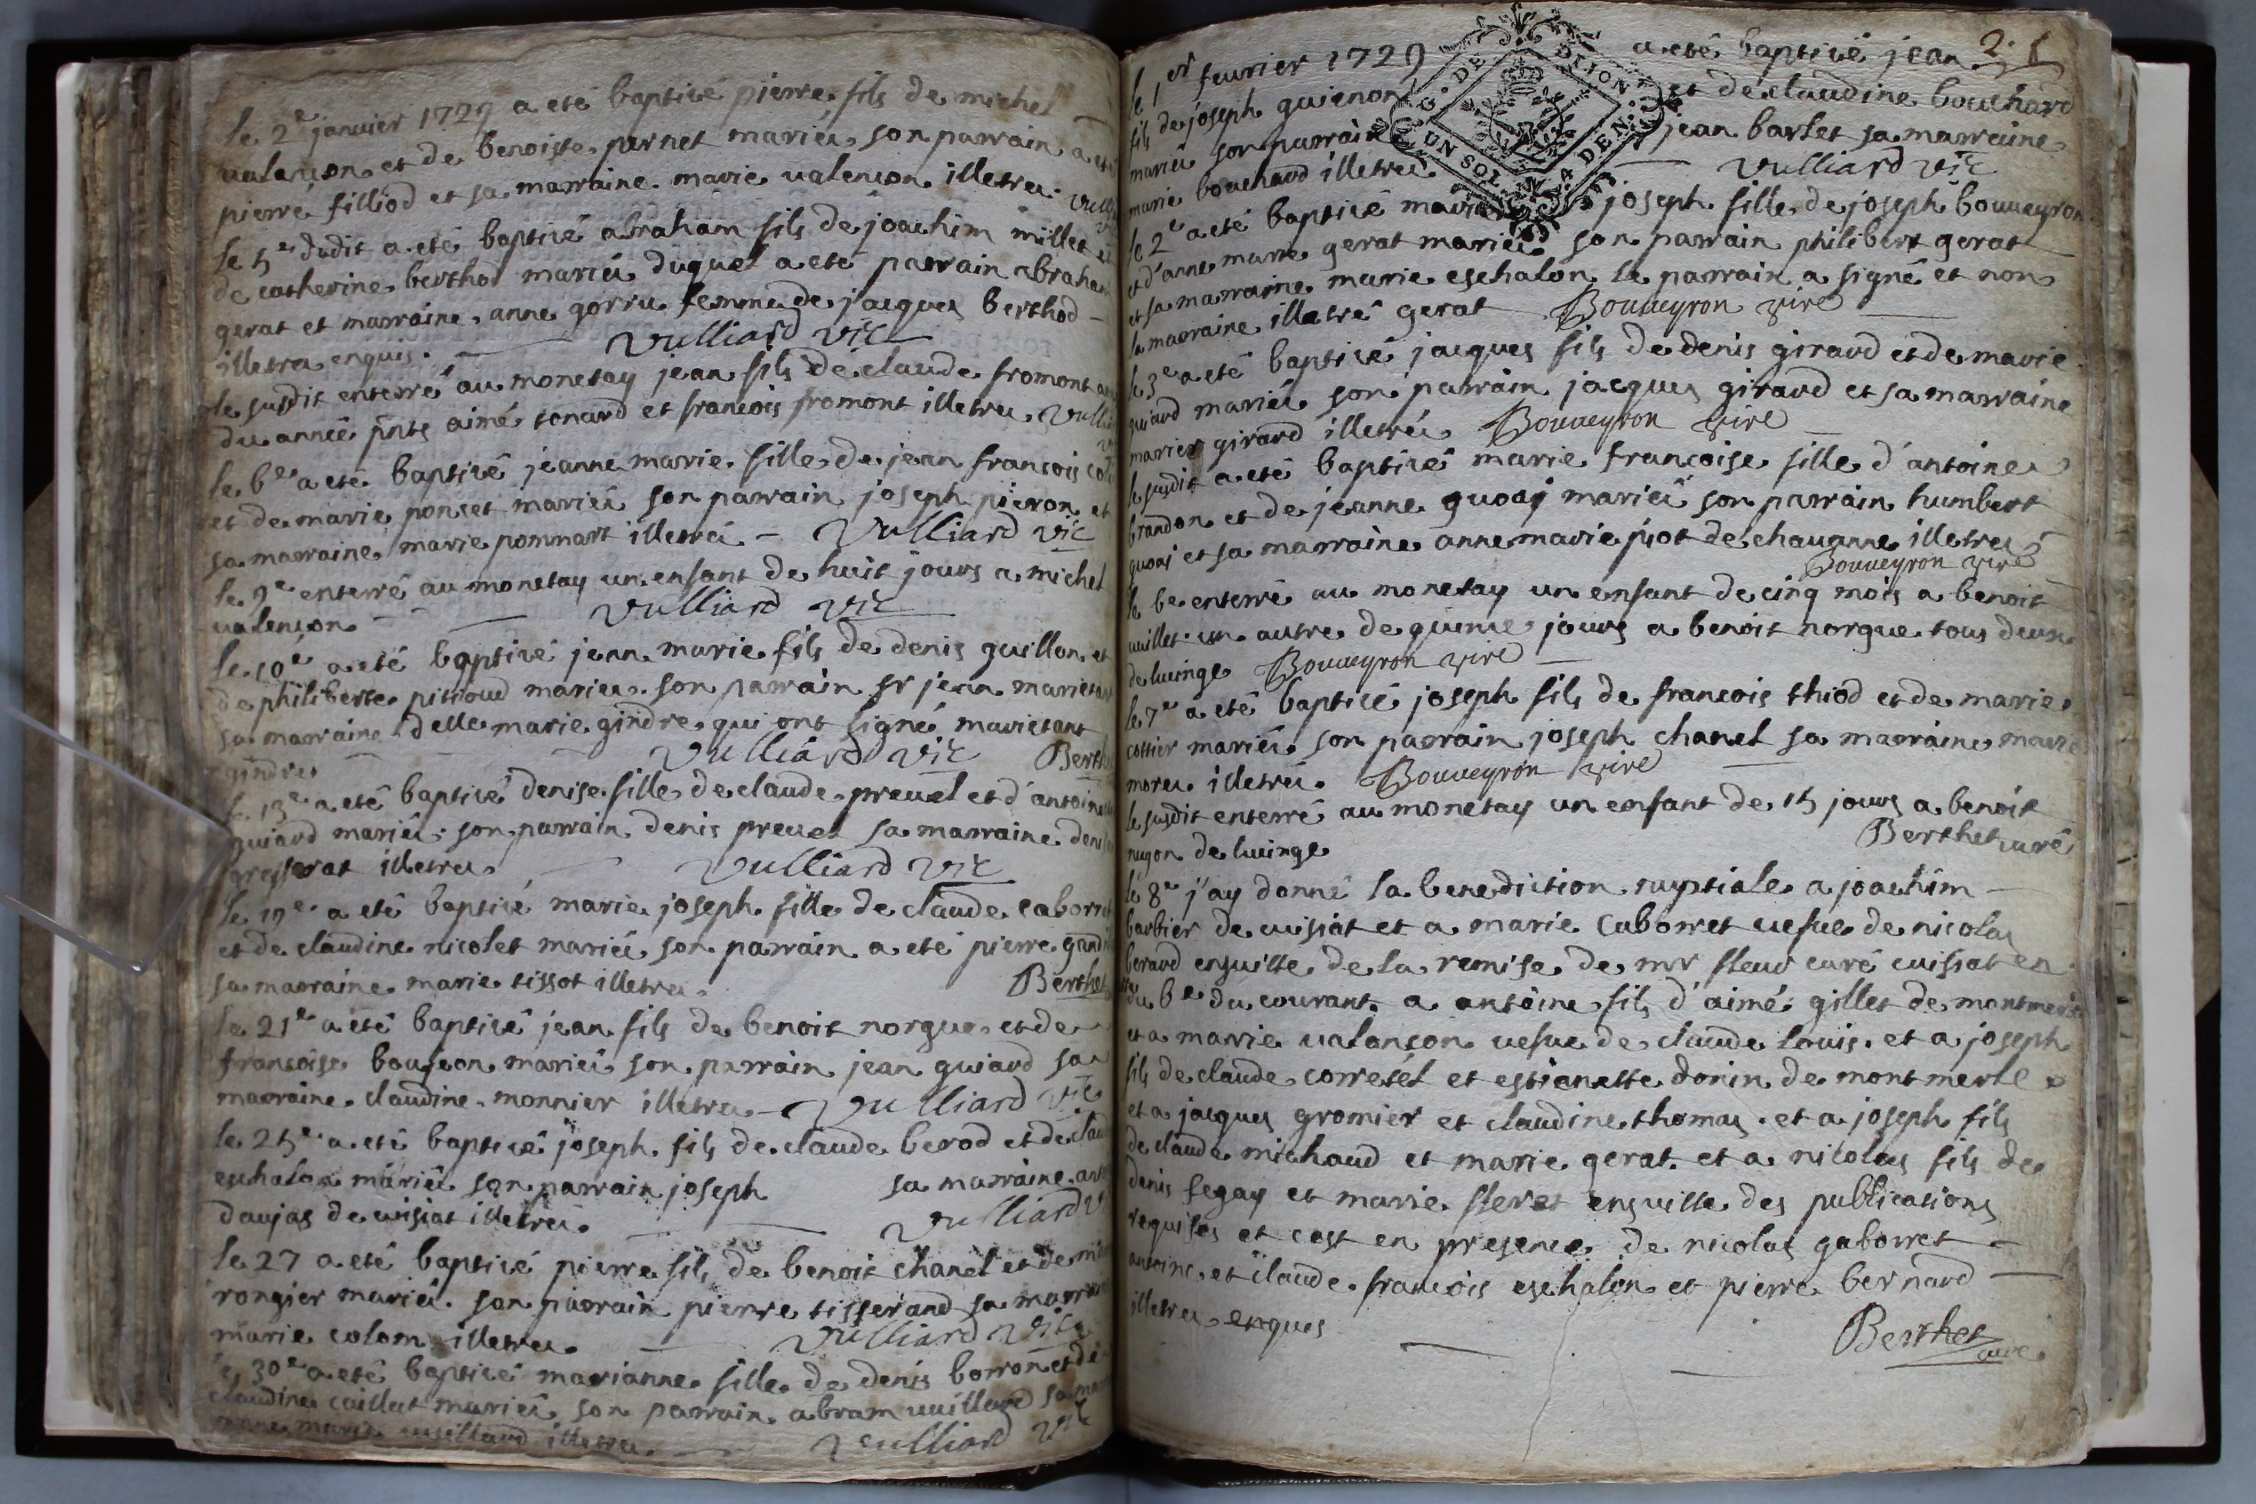 le 2e janvier 1729 a eté baptisé pierre fils de michel
valençon et de benoiste pernet mariéz son parrain a eté
pierre filliod et sa marraine marie valençon illetréz vulli
le 5e dudit a eté baptisé abraham fils de joachim millet et
de catherine berthod mariéz duquel a eté parrain abraham
gerat et marraine anne gorru femme de jacques berthod
illetréz enquis. Vulliard vic
le susdit enterré au monetay jean fils de claude fromont
du année pnts aimé tonard et françois fromont illetréz vulli
le 6e a eté baptisé jeanne marie fille de jean françois
et de marie poncet mariéz son parrain joseph pieron et
sa marraine marie pommart illetréz Vulliard vic
le 9e enterré au monetay un enfant de huit jours a michel
valençon Vulliard vic
le 10e a eté baptisé jean marie fils de denis guillon et
de philiberte pitioud mariéz son parrain sr jean marietant
sa marraine delle marie gindre qui ont signé marietant
gindre Vulliard vic Berth
le 13e a eté baptisé denise fille de claude prevel et d'antoine
guiard mariéz son parrain denis prevel sa marraine deni
gresserat illetréz Vulliard vic
le 19e a eté baptisé marie joseph fille de claude caborret
et de claudine nicolet mariéz son parrain a eté pierre grand
sa marraine marie tissot illetréz Berthet
le 21e a eté baptisé jean fils de benoit norgue et de
françoise boujeon mariéz son parrain jean guiard sa
marraine claudine monnier illetréz Vulliard vic
le 25e a eté baptisé joseph fils de claude berod et de clau
eschalon mariéz son parrain joseph sa marraine
daujas de cuisiat illetréz Vulliard v
le 27 a eté baptisé pierre fils de benoit chanel et de
rongier mariéz son parrain pierre tisserand sa marraine
marie colom illetréz Vulliard vic
le 30e a eté baptisé marianne fille de denis borron et de
claudine caillat mariéz son parrain abram vuillard sa
marie vuillard illetréz Vulliard vic
le 1er fevrier 1729 a eté baptisé jean 2.
fils de joseph guienon et de claudine bouchard
mariéz son parrain jean barlet sa marraine
marie bouchard illetréz Vulliard vic
G. DE DIJON
UN SOL. 4 DEN.
le 2e a eté baptisé marie joseph fille de joseph bouveyron
et d'anne marie gerat mariéz son parrain philibert gerat
et sa marraine marie eschalon le parrain a signé et non
la marraine illetré gerat Bouveyron vire
le 3e a eté baptisé jacques fils de denis girard et de marie
guiard mariéz son parrain jacques girard et sa marraine
marie girard illetréz Bouveyron vire
le susdit a eté baptisé marie françoise fille d'antoine
brandon et de jeanne quoay mariéz son parrain humbert
quoai et sa marraine anne marie piot de chavanne illetréz
Bouveyron vire
le 6e enterré au monetay un enfant de cinq mois a benoit
vuillet un autre de quinze jours a benoit norgue tous deux
de lwinge Bouveyron vire
le 7e a eté baptisé joseph fils de françois thiod et de marie
cottier mariéz son parrain joseph chanel sa marraine marie
morez illetréz. Bouveyron vire
le susdit enterré au monetay un enfant de 15 jours a benoit
nugon de lwinge Berthet curé
le 8e j'ay donné la benediction nuptiale a joachim
barbier de cuisiat et a marie Caborret vesve de nicolas
beraud ensuitte de la remise de mr fleur curé cuisiat en
du 6e du courant. a antoine fils d'aimé gillet de montmerle
et a marie valonson vesve de claude louis. et a joseph
fils de claude corretel et estienette donin de montmerle
et a jacques gromier et claudine thomas. et a joseph fils
de claude michaud et marie gerat. et a nicolas fils de
denis segay et marie fleret ensuitte des publications
requises et cest en presence de nicolas gaborret
antoine et claude françois eschalon et pierre bernard
illetréz enques
Berthet
curé.